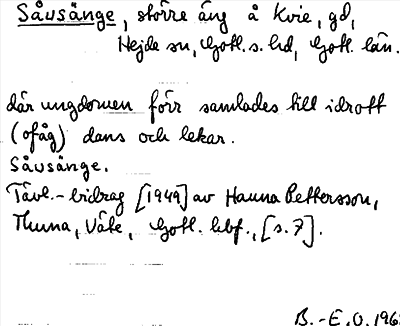 Såusänge, större äng å Kvie, gd,
Hejde sn, Gotl. s. hd, Gotl. län.
där ungdomen förr samlades till idrott
(ofåg) dans och lekar.
Såusänge.
Tävl.-bidrag [1949] av Hanna Pettersson,
Thuna, Väte, Gotl. kbf., [s. 7].
B.-E. O. 196